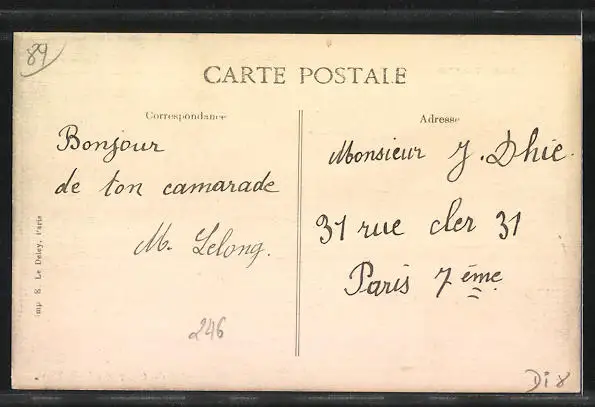 89
CARTE POSTALE
Correspondance
Adresse
Bonjour
de ton camarade
M. Lelong.
Monsieur J. Dhic.
31 rue cler 31
Paris 7 ème
246
Imp. E. Le Deley, Paris